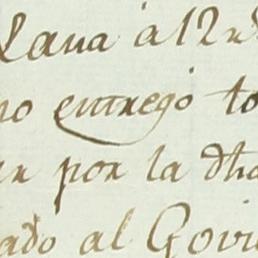 Lana à 12 r
no entregó to
an por la dha
ado al Govi